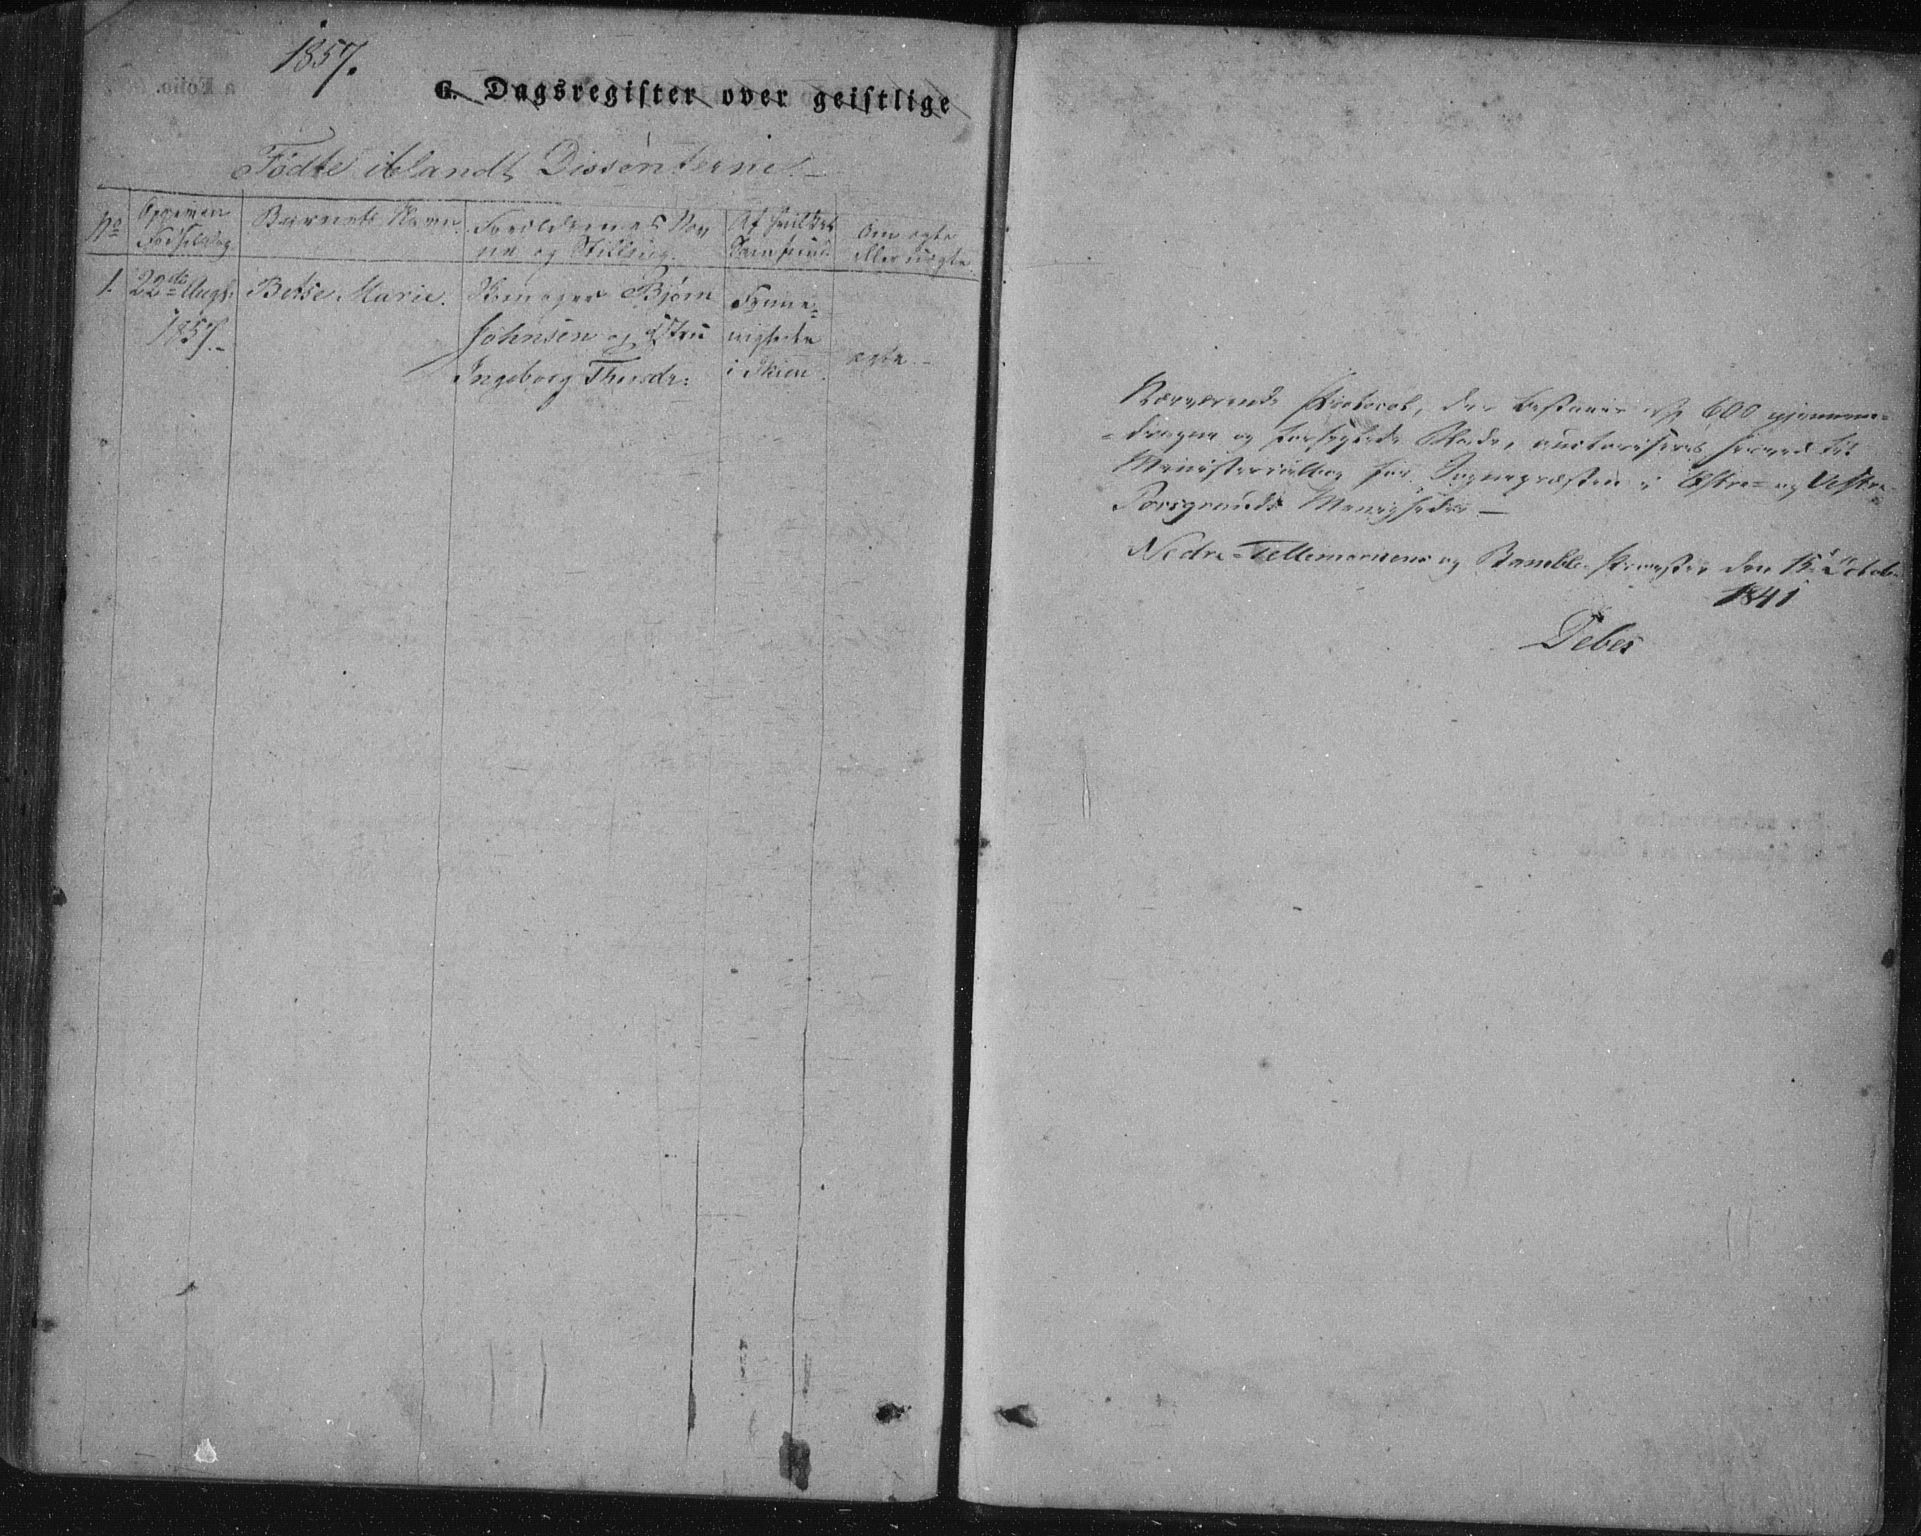 1857.
G. Dagsregister over geistlige
Fødte iblandt Dissenterne.
No
Aar og
Fødselsdag
Barnets Navn
Forældrenes Nav
ne og Stilling.
Af hvilket
Samfund
Om ægte
eller uægte
1. 22de Augs. Betse Marie. Skomager Bjørn
1857. Johnsen og Hustru
Ingeborg Thusdr:
Frime=
nigheden
i Skien
ægte
Nærværende Protocol, der bestaaer af 600 gjennem=
=dragne og forseglede Blade, auctoriseres herved til
Ministerialbog for Sognepræsten i Østre= og Vestre=
Porsgrunds Menigheder —
Nedre=Tellemarkens og Bamble Provstie den 15de Octob
1841
Debes